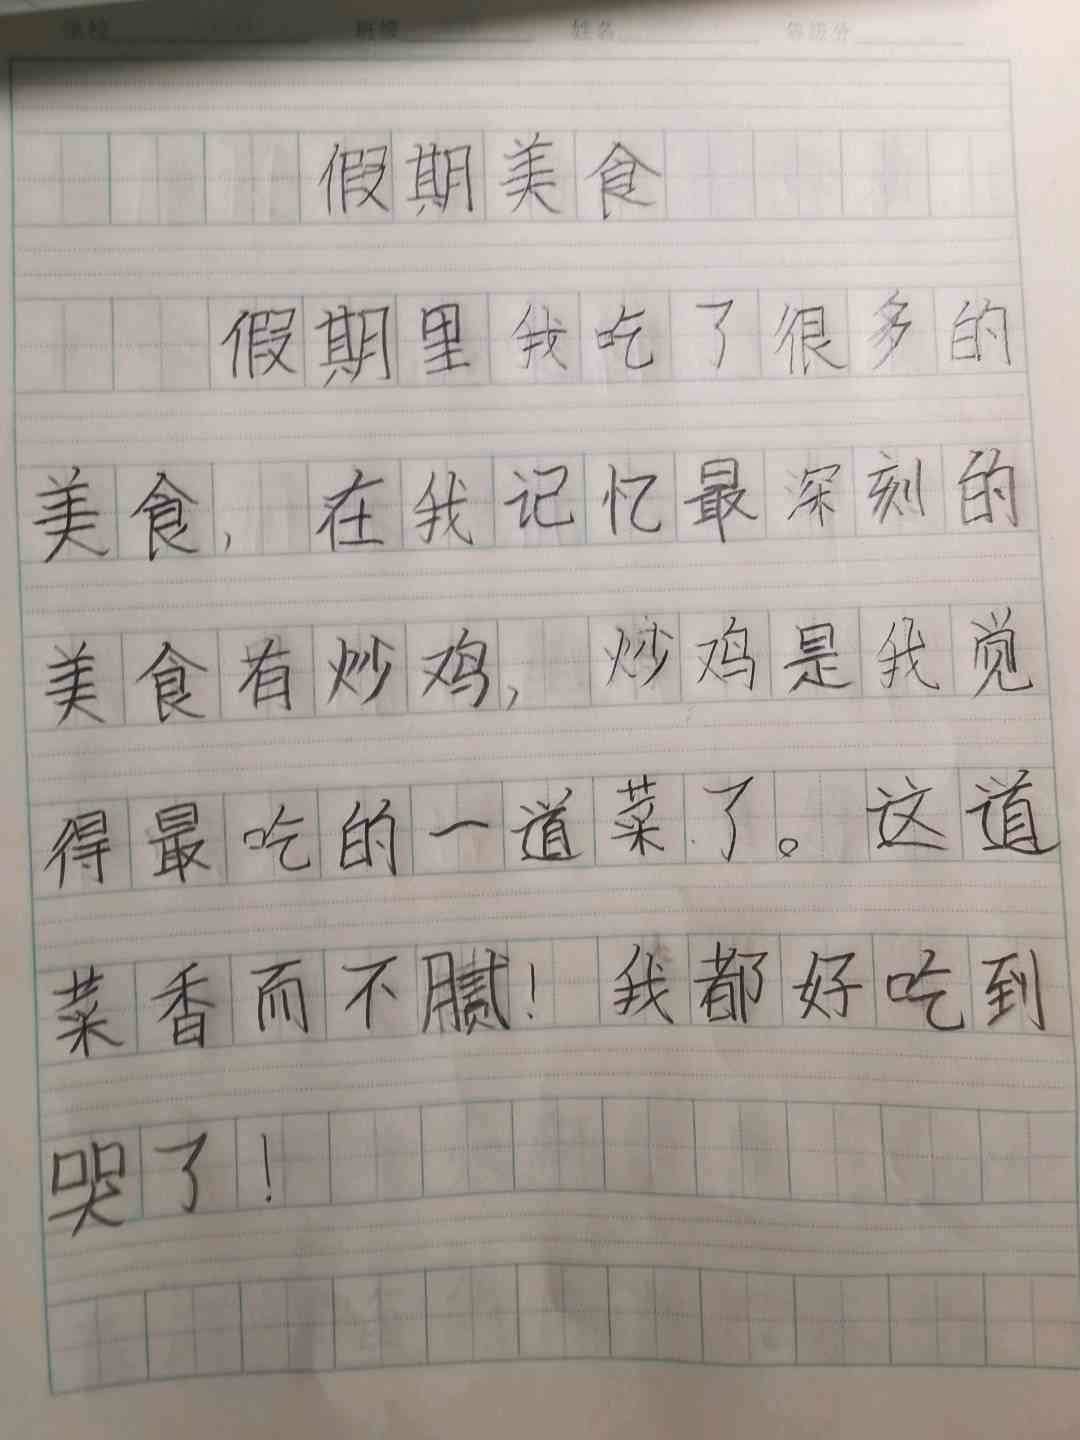 学校 班级 姓名 等级分
假期美食
假期里我吃了很多的
美食，在我记忆最深刻的
美食有炒鸡，炒鸡是我觉
得最吃的一道菜了。这道
菜香而不腻！我都好吃到
哭了！